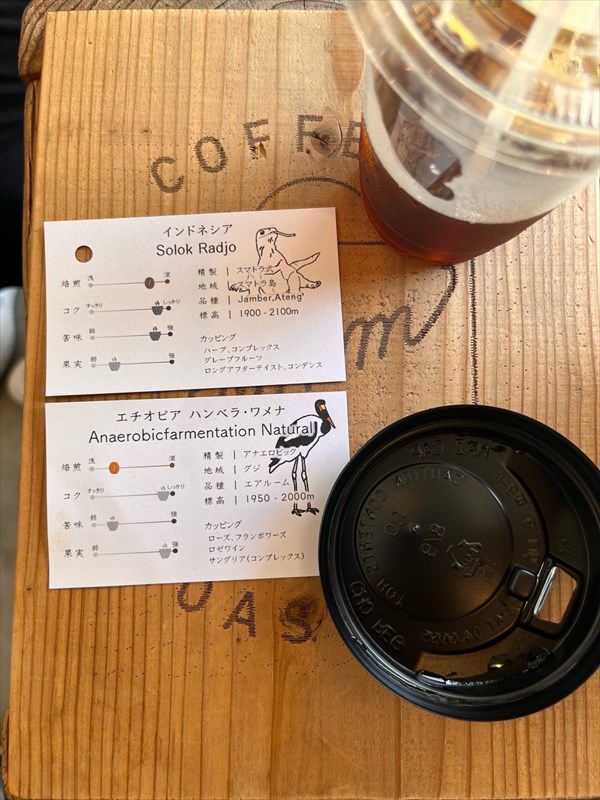 COFFEE
インドネシア
Solok Radjo
焙煎 浅 深
コク すっきり しっかり
苦味 弱 強
果実 弱 強
精製 | スマトラ式
地域 | スマトラ島
品種 | Jamber,Ateng
標高 | 1900 - 2100m
カッピング
ハーブ、コンプレックス
グレープフルーツ
ロングアフターテイスト、コンデンス
エチオピア ハンベラ・ワメナ
Anaerobicfarmentation Natural
焙煎 浅 深
コク すっきり しっかり
苦味 弱 強
果実 弱 強
精製 | アナエロビック
地域 | グジ
品種 | エアルーム
標高 | 1950 - 2000m
カッピング
ローズ、フランボワーズ
ロゼワイン
サングリア(コンプレックス)